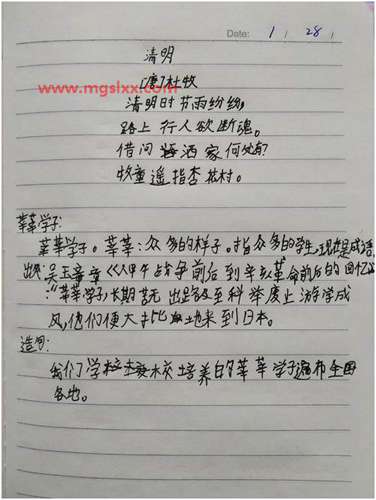 Date: 1 / 28 /
清明
[唐]杜牧
www.mgslxx.com
清明时节雨纷纷,
路上行人欲断魂。
借问酒家何处有?
牧童遥指杏花村。
莘莘学子:
莘莘学子。莘莘:众多的样子。指众多的学生。现在是成语,
出自吴玉章《从甲午战争前后到辛亥革命前后的回忆》
:"莘莘学子,长期苦无出路及至科举废止游学成
风,他们便大批地来到日本。
造句:
我们学校培养的莘莘学子遍布全国
各地。